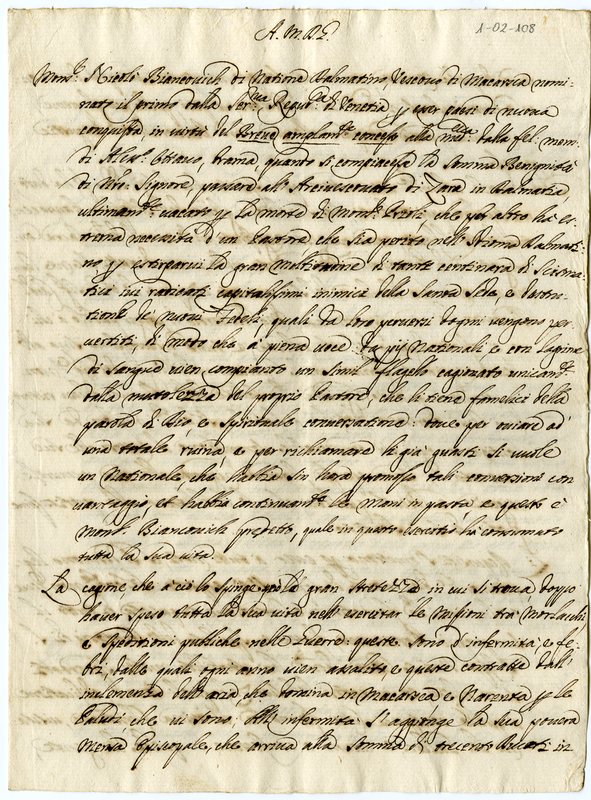 A. M. D. G.
1-02-108
Mons.r Nicolò Biancovich di Natione Dalmatino, Vescovo di Macarsca nomi-
nato il primo dalla Ser.ma Repu.ca di Venetia p esser paese di nuova
conquista, in virtù del Breve amplam.te concesso alla med.ma dalla fel. mem.
di Aless.o Ottavo, brama, quando si compiacesse la somma Benignità
di N̄ro Signore, passare all' Arcivescovato di Zara in Dalmatia,
ultimam.te vacato p la morte di Mons.r che per altro hà es-
trema necessità d'un Pastore che sia perito nell' Idioma Dalmati-
no, p estirparvi la gran moltitudine di tante centinara di Scisma-
tici ivi radicati capitalissimi inimici della Santa Sede, e destru-
tione de' nuovi Fedeli, quali da loro perversi dogmi vengono per-
vertiti, di modo che à piena voce da più Nationali, e con lagrime
di sangue vien compianto un simil flagello cagionato unicam.te
dalla mutolezza del proprio Pastore, che li tiene famelici della
parola di Dio, e spirituale conversatione: dove per oviare ad'
una totale ruina, e per richiamare li già guasti si vuole
un Nationale, che habbia sin hora promosso tali conversioni con
vantaggio, et habbia continuam.te le mani in pasta, e questo è
Mons.r Biancovich predetto, quale in questo esercitio hà consumato
tutta la sua vita.
La cagione, che à ciò lo spinge è la gran strettezza in cui si trova, doppo
haver speso tutta la sua vita nell' esercitar le Missioni trà Morlacchi,
e speditioni publiche nelle guerre: queste sono d'infermità, e fe-
bri, dalle quali ogni anno vien assalito, e queste contratte dall'
inclemenza dell' aria, che domina in Macarsca e Narenta p le
Paludi che vi sono; All' infermità s'aggionge la sua povera
Mensa Episcopale, che arriva alla somma di trecento in